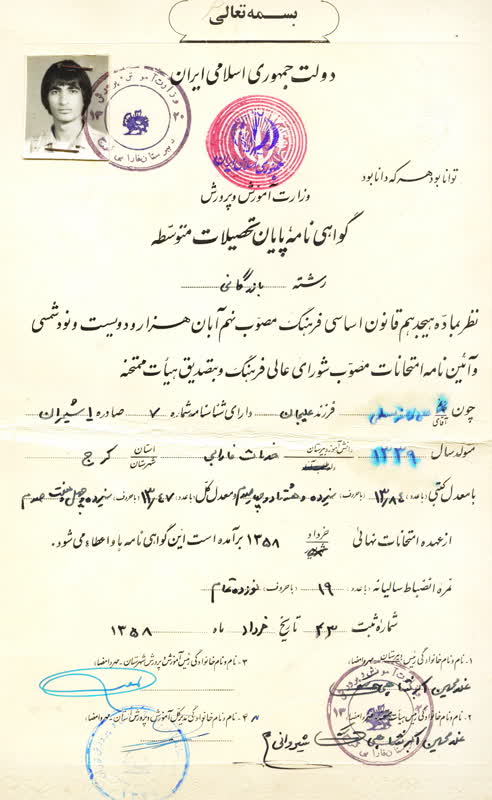 بسمه تعالی
دولت جمهوری اسلامی ایران
توانا بود هر که دانا بود
وزارت آموزش و پرورش
گواهی نامه پایان تحصیلات متوسطه
رشته بازرگانی
نظر بماده هیجدهم قانون اساسی فرهنگ مصوب نهم آبان هزار و دویست و نود شمسی
و آئین نامه امتحانات مصوب شورای عالی فرهنگ و بتصدیق هیأت ممتحنه
چون آقای فرزند دارای شناسنامه شماره ۷ صادره از شمیران
متولد سال ۱۳۳۹ دانش آموز دبیرستان خدمات فارابی استان شهرستان کرج
با معدل کتبی (با عدد) ۱۳/۸۴ (با حروف) سیزده و هشتاد و چهار صدم و معدل کل (با عدد) ۱۳/۴۷ (با حروف) سیزده و چهل و هفت صدم
از عهده امتحانات نهائی خرداد ۱۳۵۸ برآمده است این گواهی نامه باو اعطاء می شود.
نمره انضباط سالیانه (با عدد) ۱۹ (با حروف) نوزده تمام
شماره ثبت ۲۳ تاریخ خرداد ماه ۱۳۵۸
۱- نام و نام خانوادگی رئیس دبیرستان - مهر و امضاء:
۳- نام و نام خانوادگی رئیس آموزش و پرورش شهرستان - مهر و امضاء:
۲- نام و نام خانوادگی رئیس هیأت ممتحنه - مهر و امضاء:
۴- نام و نام خانوادگی مدیر کل آموزش و پرورش استان - مهر و امضاء:
شیروانی